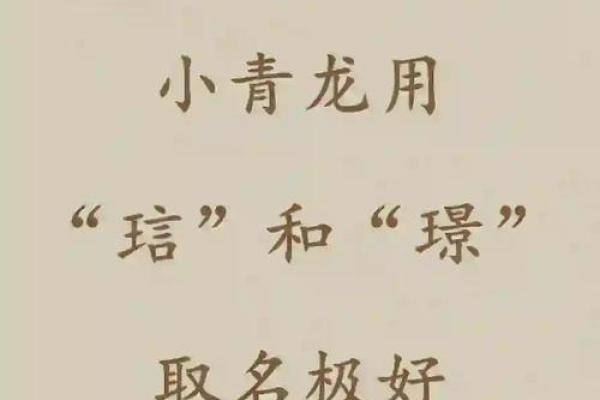 小青龙用
“琂”和“璟”
取名极好